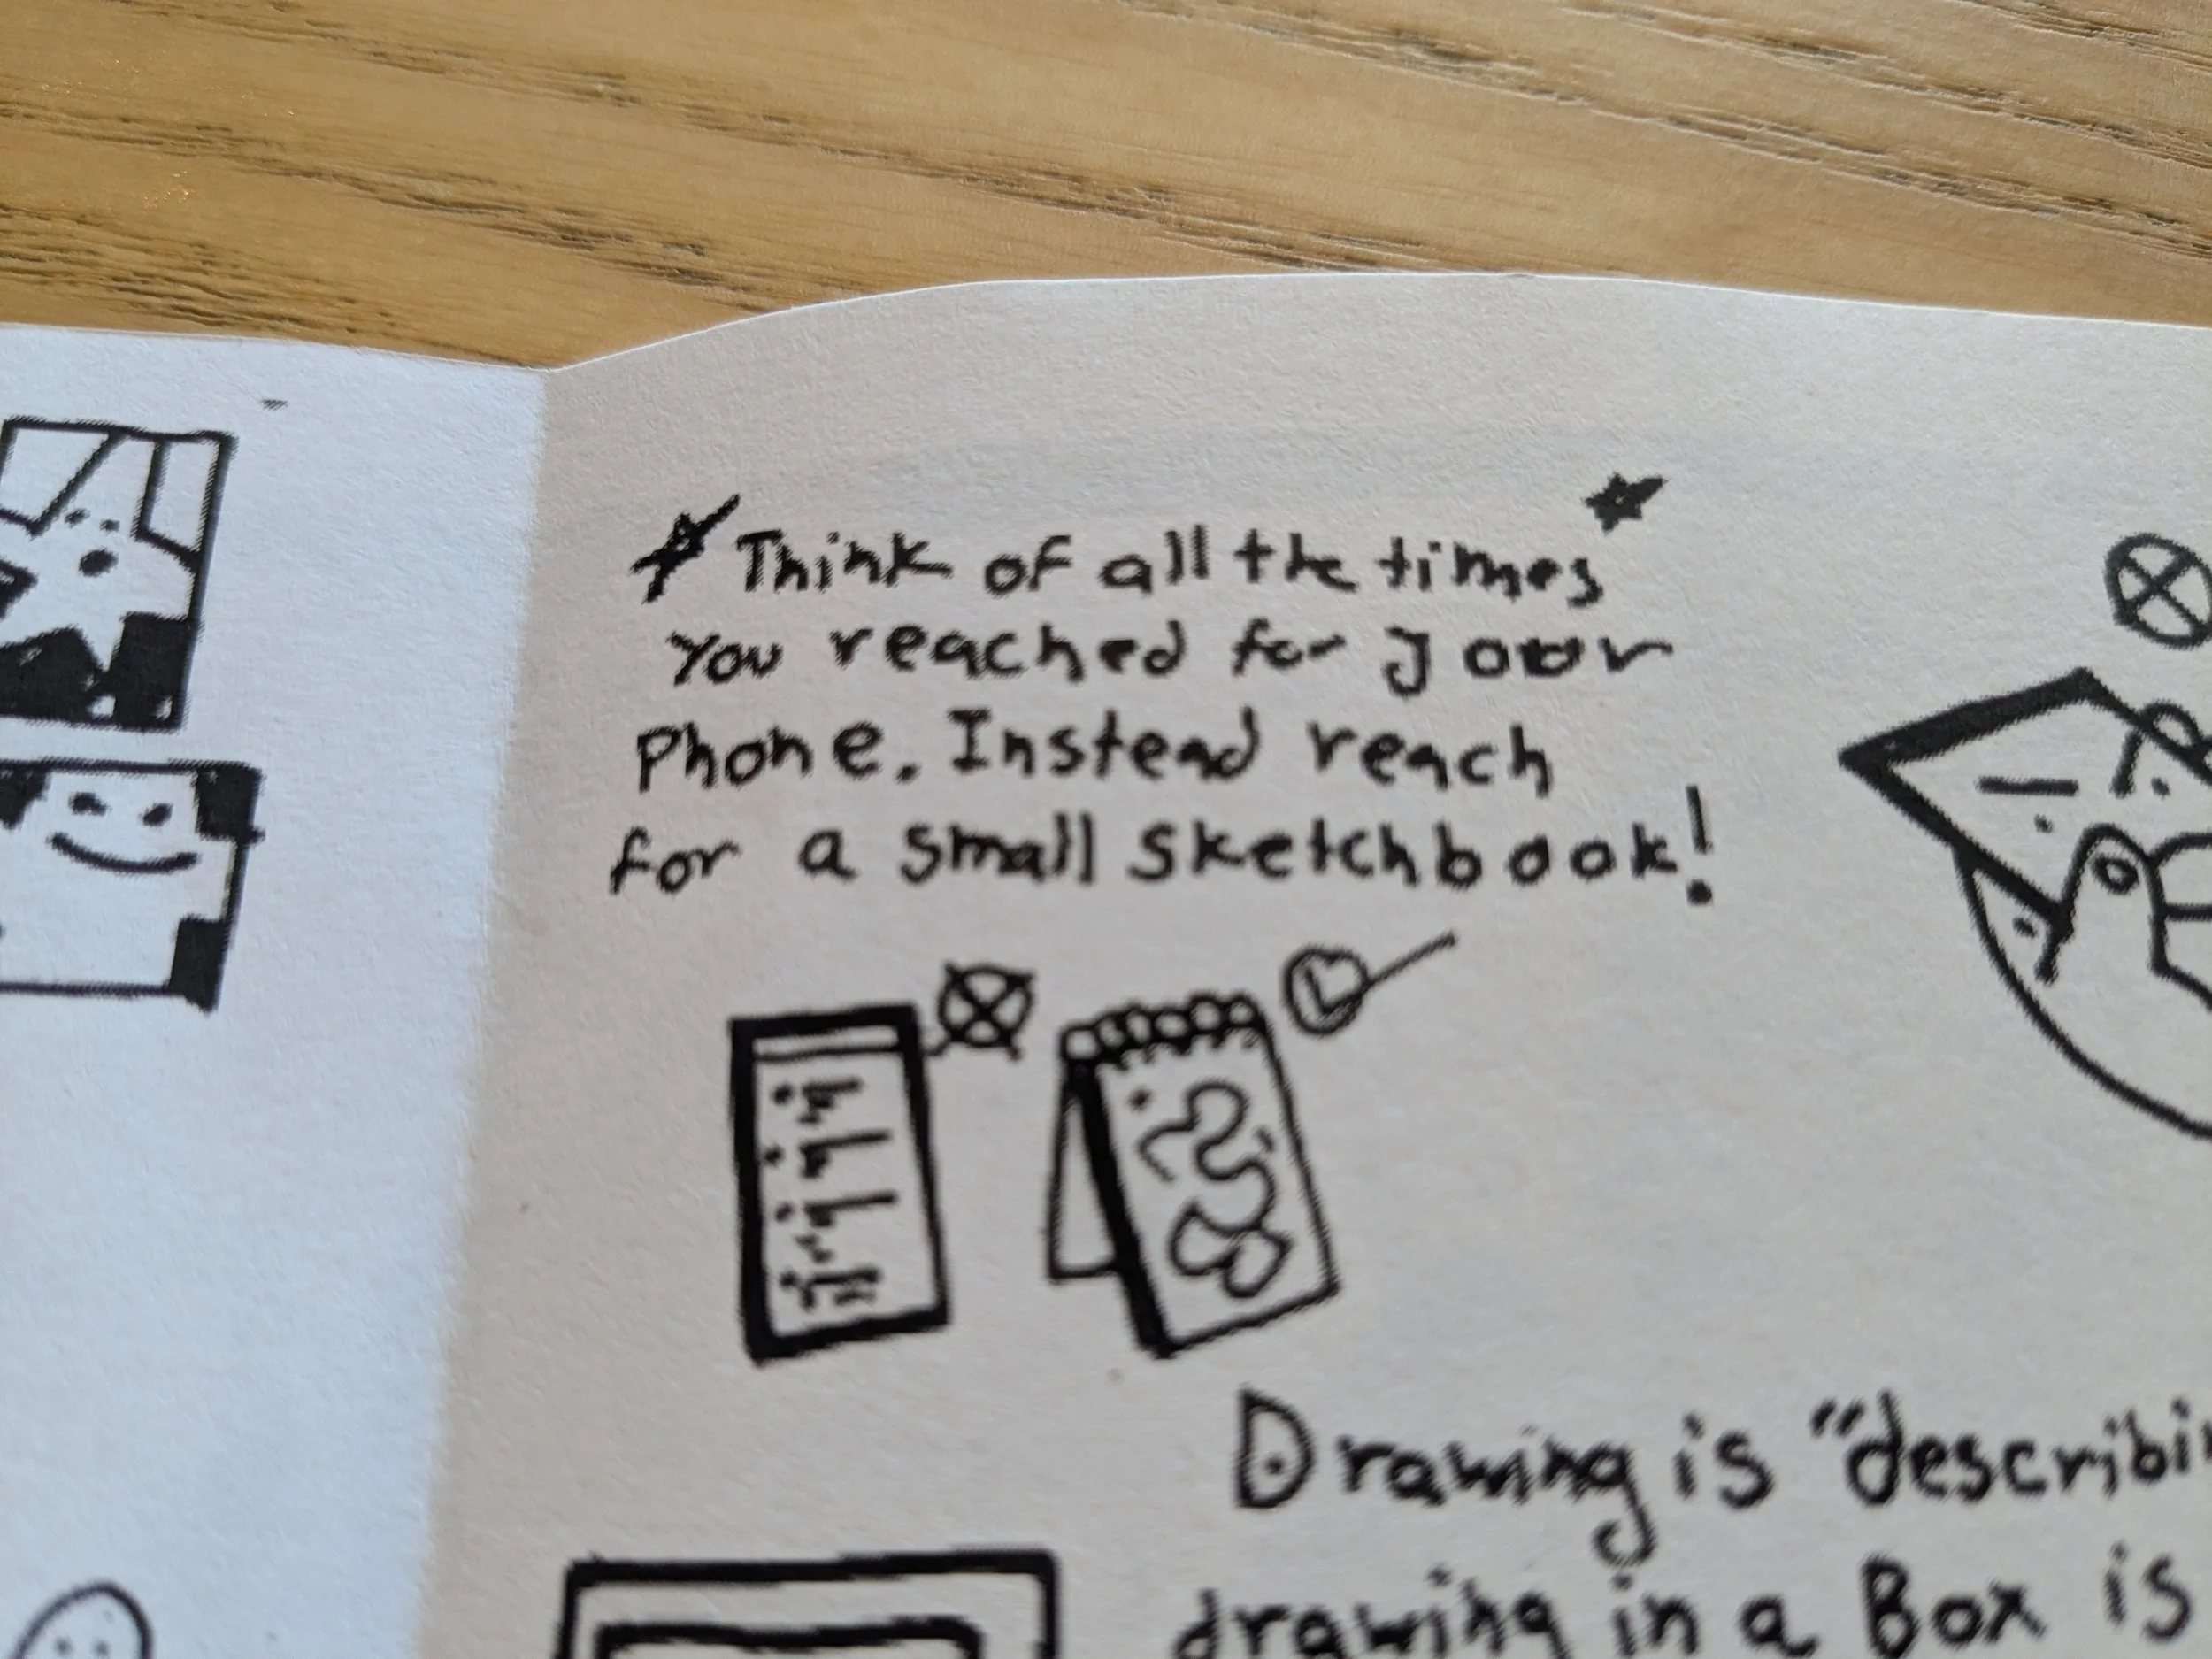 Think of all the times
You reached for your
Phone. Instead reach
for a small sketchbook!
Drawing is "describin
drawing in a Box is